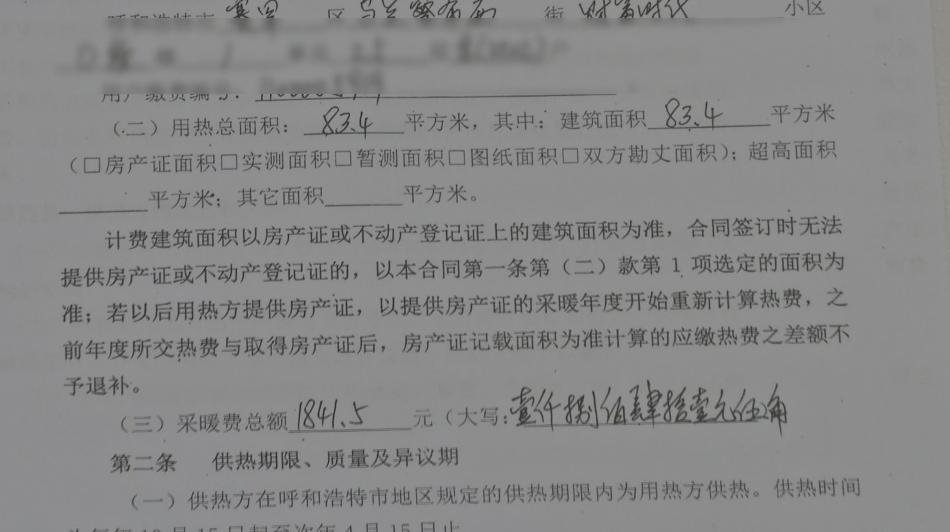 呼和浩特市 赛罕 区 乌兰察布西 街 财富时代 小区
用户缴费编号:
(二)用热总面积: 83.4 平方米,其中: 建筑面积 83.4 平方米
(□房产证面积□实测面积□暂测面积□图纸面积□双方勘丈面积);超高面积
______平方米;其它面积______平方米。
计费建筑面积以房产证或不动产登记证上的建筑面积为准,合同签订时无法
提供房产证或不动产登记证的,以本合同第一条第(二)款第 1 项选定的面积为
准;若以后用热方提供房产证,以提供房产证的采暖年度开始重新计算热费,之
前年度所交热费与取得房产证后,房产证记载面积为准计算的应缴热费之差额不
予退补。
(三)采暖费总额 1841.5 元(大写:壹仟捌佰肆拾壹元伍角
第二条 供热期限、质量及异议期
(一)供热方在呼和浩特市地区规定的供热期限内为用热方供热。供热时间
为每年 10 月 15 日起至次年 4 月 15 日止